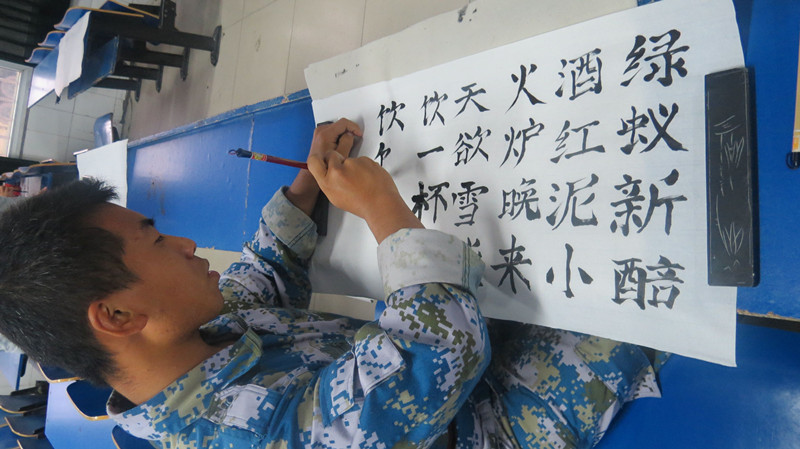 绿蚁新醅
酒红泥小
火炉晚来
天欲雪
饮一杯
饮